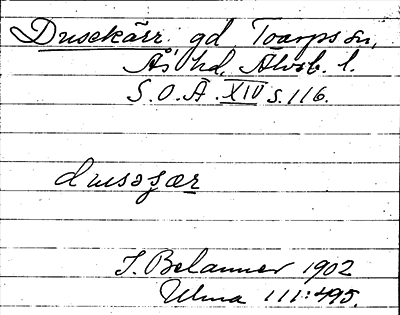 Dusekärr gd Toarps sn,
Ås hd, Älvsb. l.
S.O.Ä. XIV s. 116.
dusəʒær
J. Belanner 1902
Ulma 111:495.